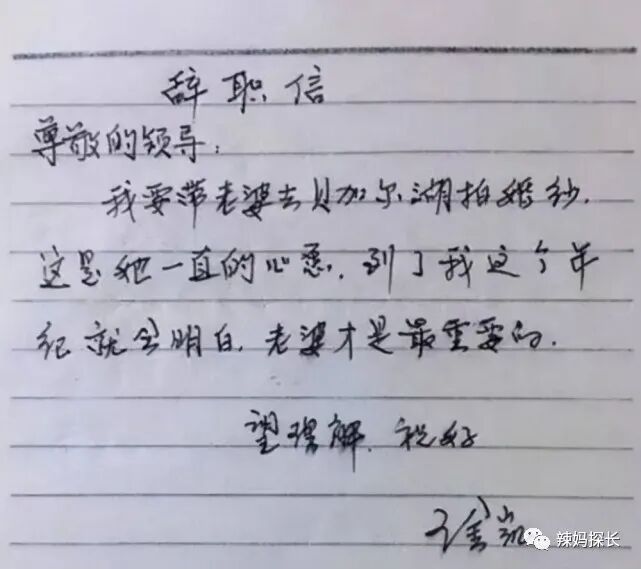 辞职信
尊敬的领导:
我要带老婆去贝加尔湖拍婚纱.
这是她一直的心愿.到了我这个年
纪就会明白.老婆才是最重要的.
望理解.祝好
徐凯
辣妈探长